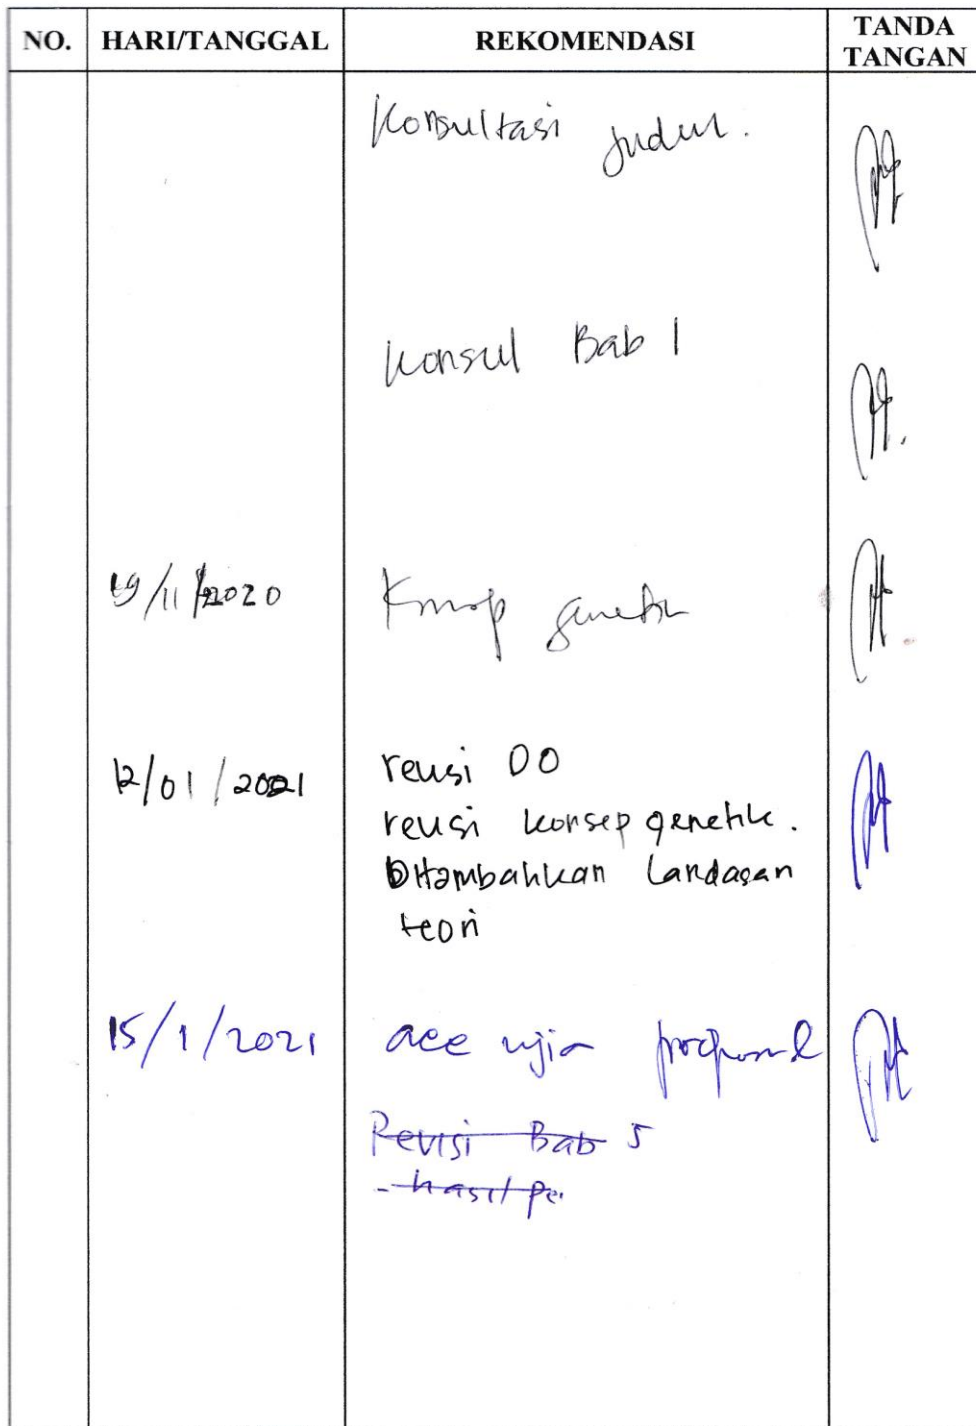 NO. HARI/TANGGAL REKOMENDASI TANDA TANGAN
Konsultasi judul.
Konsul Bab 1
19/11/2020 Konsep genetik
12/01/2021 revisi DO
revisi konsep genetik.
Ditambahkan Landasan
teori
15/1/2021 acc ujian proposal
Revisi Bab 5
- hasil pe